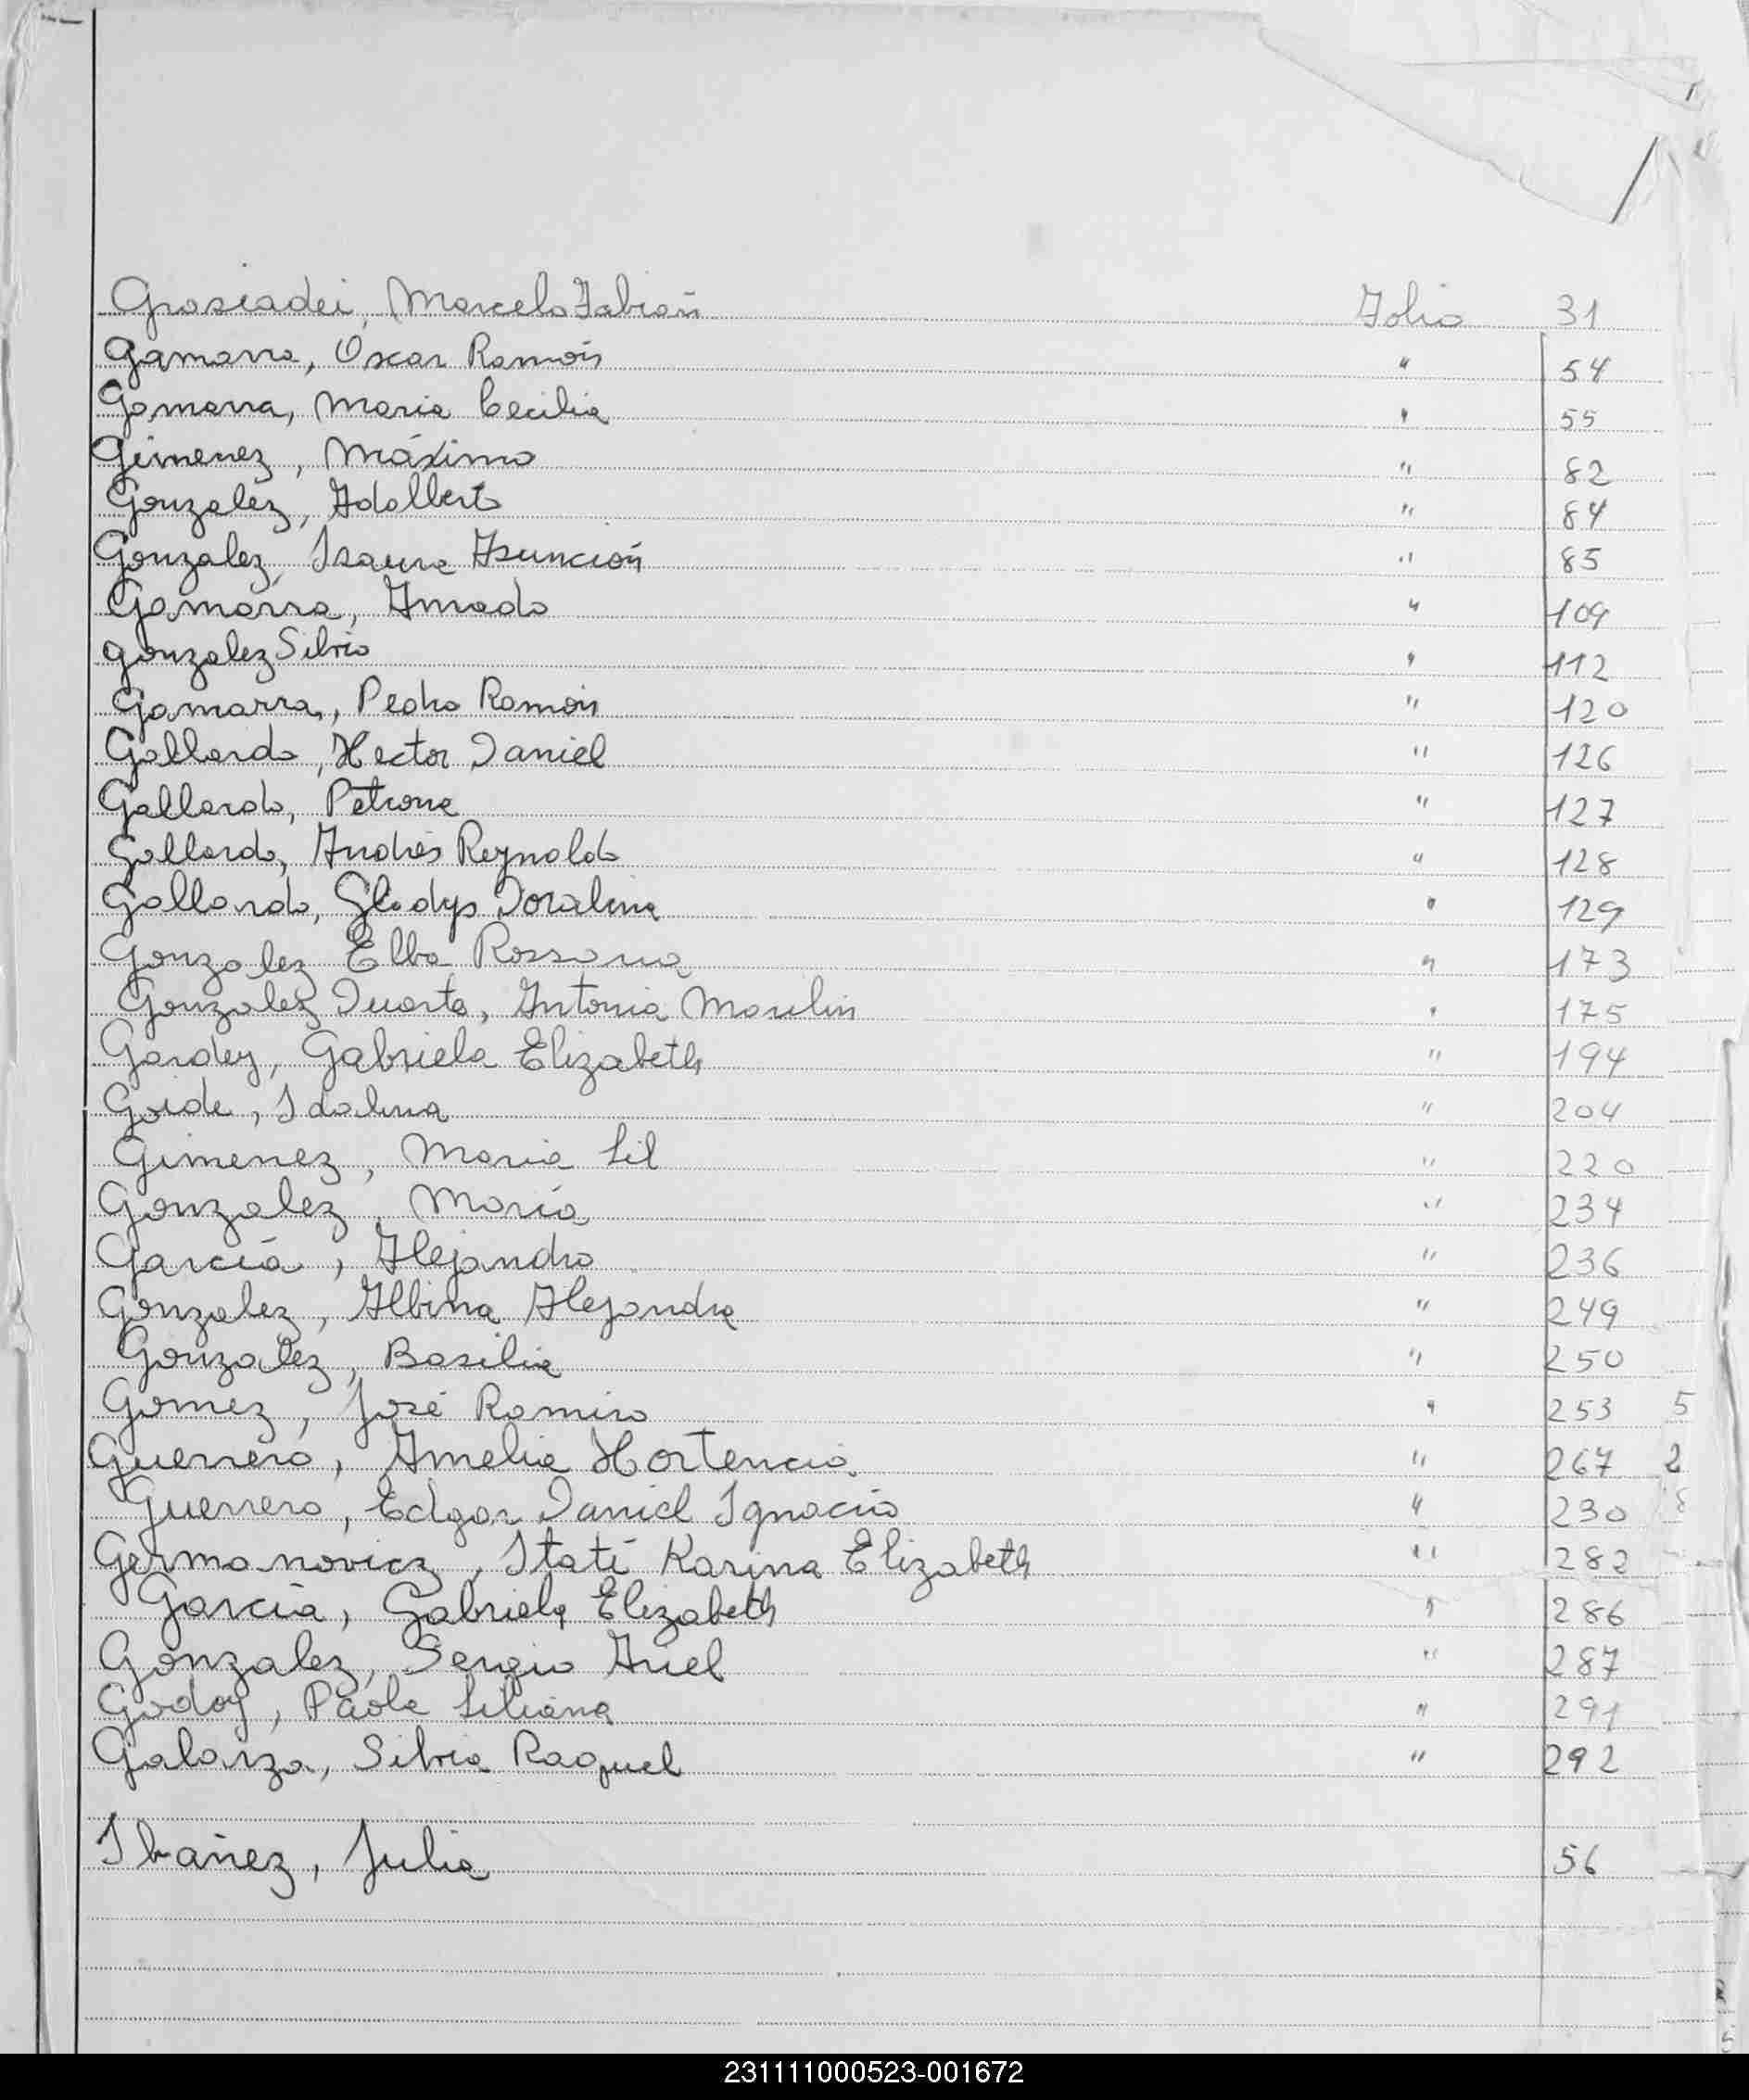 Grasiadei, Marcelo Fabián Folio 31
Gamarra, Oscar Ramón " 54
Gamarra, Maria Cecilia " 55
Gimenez, Máximo " 82
Gonzalez, Adalberto " 84
Gonzalez, Isaura Asunción " 85
Gamarra, Amado " 109
Gonzalez Silvio " 112
Gamarra, Pedro Ramón " 120
Gallardo, Hector Daniel " 126
Gallardo, Petrona " 127
Gallardo, Andrés Reynaldo " 128
Gallardo, Gladys Doralina " 129
Gonzalez Elba Rossana " 173
Gonzalez Duarte, Antonia " 175
Gardey, Gabriela Elizabeth " 194
Idalina " 204
Gimenez, Maria Lil " 220
Gonzalez, María " 234
García, Alejandro " 236
Gonzalez, Albina Alejandra " 249
Gonzalez, Basilia " 250
Gomez, José Ramiro " 253 5
Guerrero, Amelia Hortencia " 267 2
Guerrero, Edgar Daniel Ignacio " 230 8
Germanovicz, Itatí Karina Elizabeth " 282
García, Gabriela Elizabeth " 286
Gonzalez, Sergio Ariel " 287
Godoy, Paola Liliana " 291
Galarza, Silvia Raquel " 292
Ibañez, Julia 56
231111000523-001672